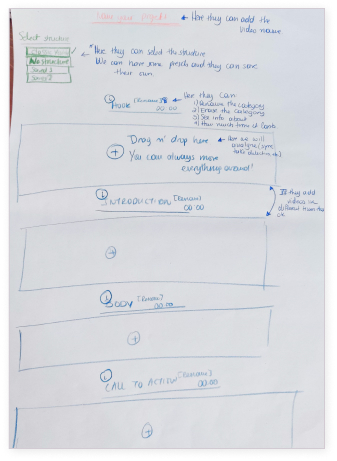 Name your project
← Here they can add the
video name
Select structure
No structure
Saved 1
Saved 2
← Here they can select the structure
We can have some presets and they can save
their own
i HOOK (Rename)
00:00
← Here they can
1) Rename the category
2) Erase the category
3) See info about
4) How much time it lasts
Drag n' drop here
+ You can always move
everything around!
← Here we will
i INTRODUCTION (Rename)
00:00
If they add
videos in
different than the
+
i BODY (Rename)
00:00
+
i CALL TO ACTION (Rename)
00:00
+